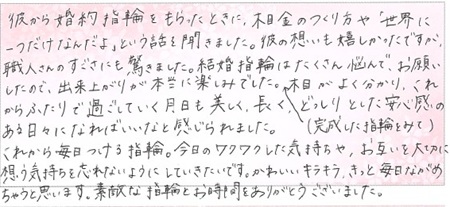 彼から婚約指輪をもらったときに、木目金のつくり方や「世界に
一つだけなんだよ」という話を聞きました。彼の想いも嬉しかったですが、
職人さんのすごさにも驚きました。結婚指輪はたくさん悩んで、お願い
したので、出来上がりが本当に楽しみでした。木目がよく分かり、これ
からふたりで過ごしていく月日も美しく、長く、どっしりとした安心感の
ある日々になればいいなと感じられました。(完成した指輪をみて)
これから毎日つける指輪。今日のワクワクした気持ちや、お互いを大切に
想う気持ちを忘れないようにしていきたいです。かわいいキラキラ、きっと毎日ながめ
ちゃうと思います。素敵な指輪とお時間をありがとうございました。